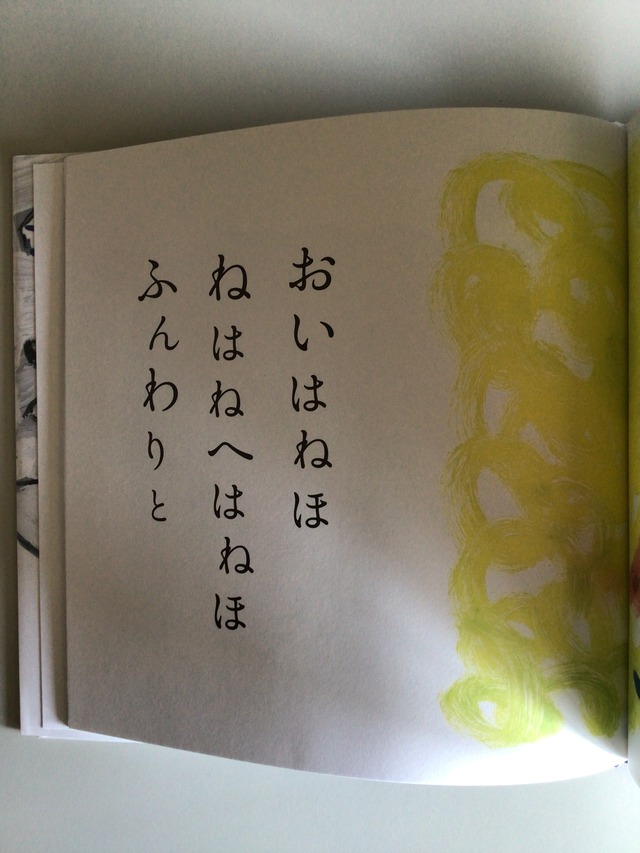 おいはねほ
ねはねへはねほ
ふんわりと